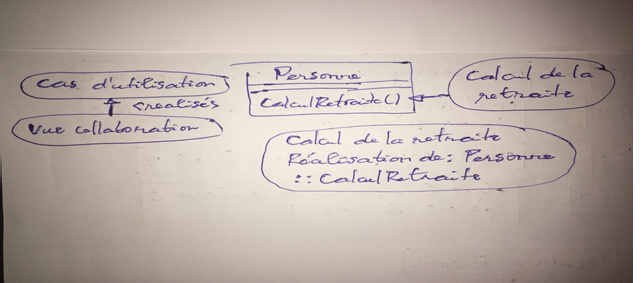 Cas d'utilisation
réalisés
Vue collaboration
Personne
CalculRetraite()
Calcul de la
retraite
Calcul de la retraite
Réalisation de : Personne
:: CalculRetraite